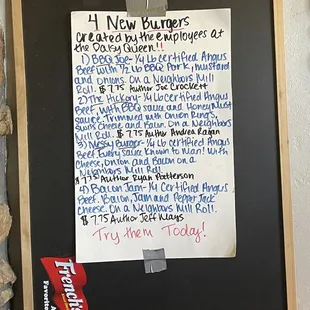 4 New Burgers
Created by the employees at
the Daisy Queen!!
1) BBQ Joe- 1/4 lb certified Angus
Beef with 1/2 lb BBQ Pork, mustard
and onions. On a Neighbors Mill
Roll. $7.75 Author Joe Crockett
2) The Hickory- 1/4 Lb certified Angus
Beef with BBQ sauce and Honey Must
sauce. Trimmed with Onion Rings,
Swiss Cheese and Bacon. On a Neighbors
Mill Roll. $7.75 Author Andrea Ragan
3) Messy Burger- 1/4 lb certified Angus
Beef. Every sauce known to man! With
cheese, onion and Bacon on a
Neighbors Mill Roll
$7.75 Author Ryan Patterson
4) Bacon Jam- 1/4 Certified Angus
Beef. Bacon, Jam and Pepper Jack
Cheese. On a Neighbors Mill Roll.
$7.75 Author Jeff Mays
Try them Today!
French's
Favorite